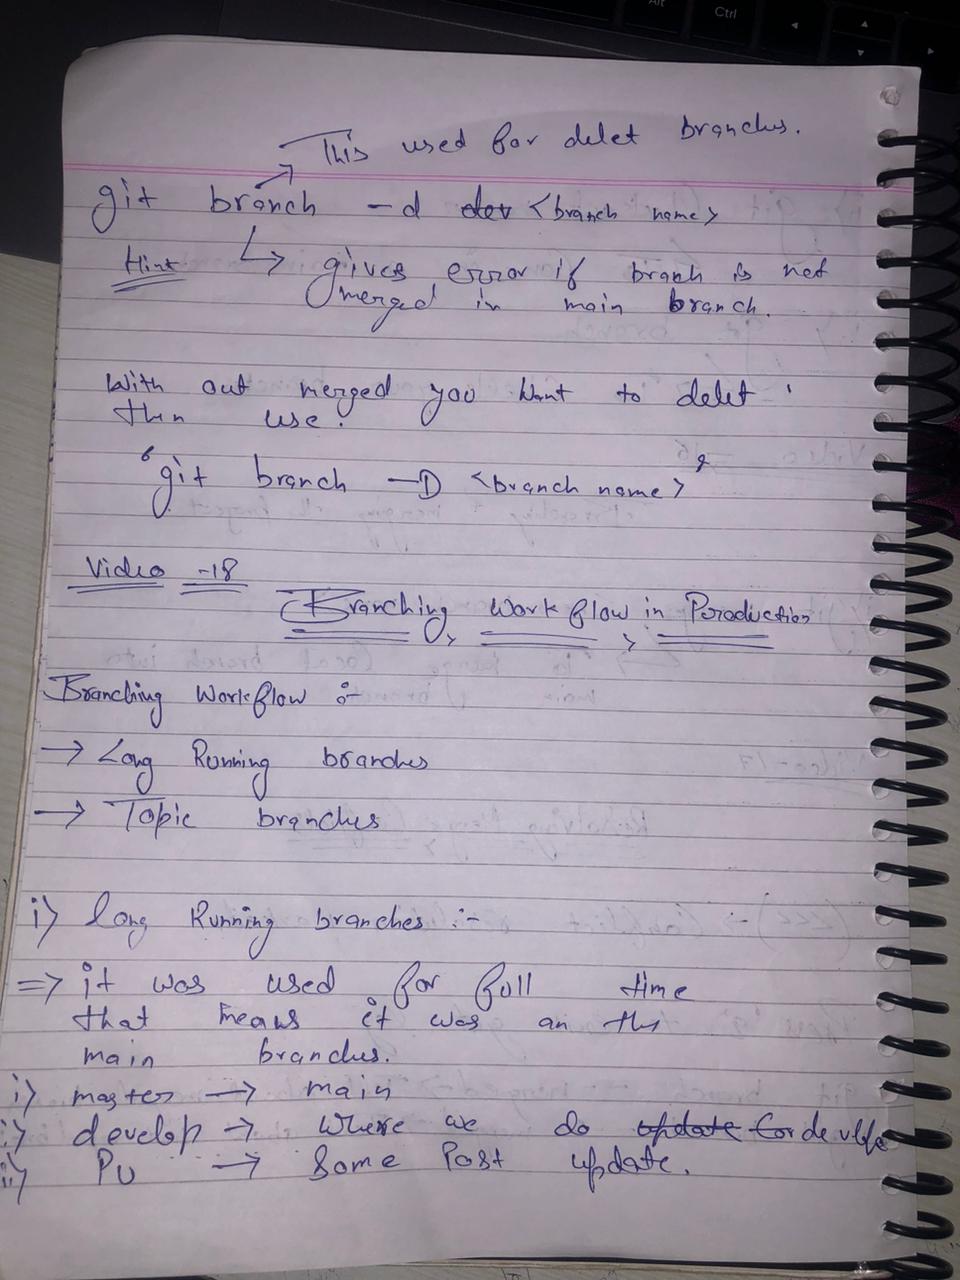 This used for delet branches.
git branch -d dev <branch name>
Hint gives error if branh is not
merged in main branch.
With out merged you want to delet
then use.
git branch -D <branch name>
Video -18
Branching Workflow in Production
Branching Workflow :-
→ Long Running branches
→ Topic branches
i) long Running branches :-
=> it was used for full time
that means it was an the
main branches.
i) master → main
ii) develop → where we do update for
PU → Some Post update.